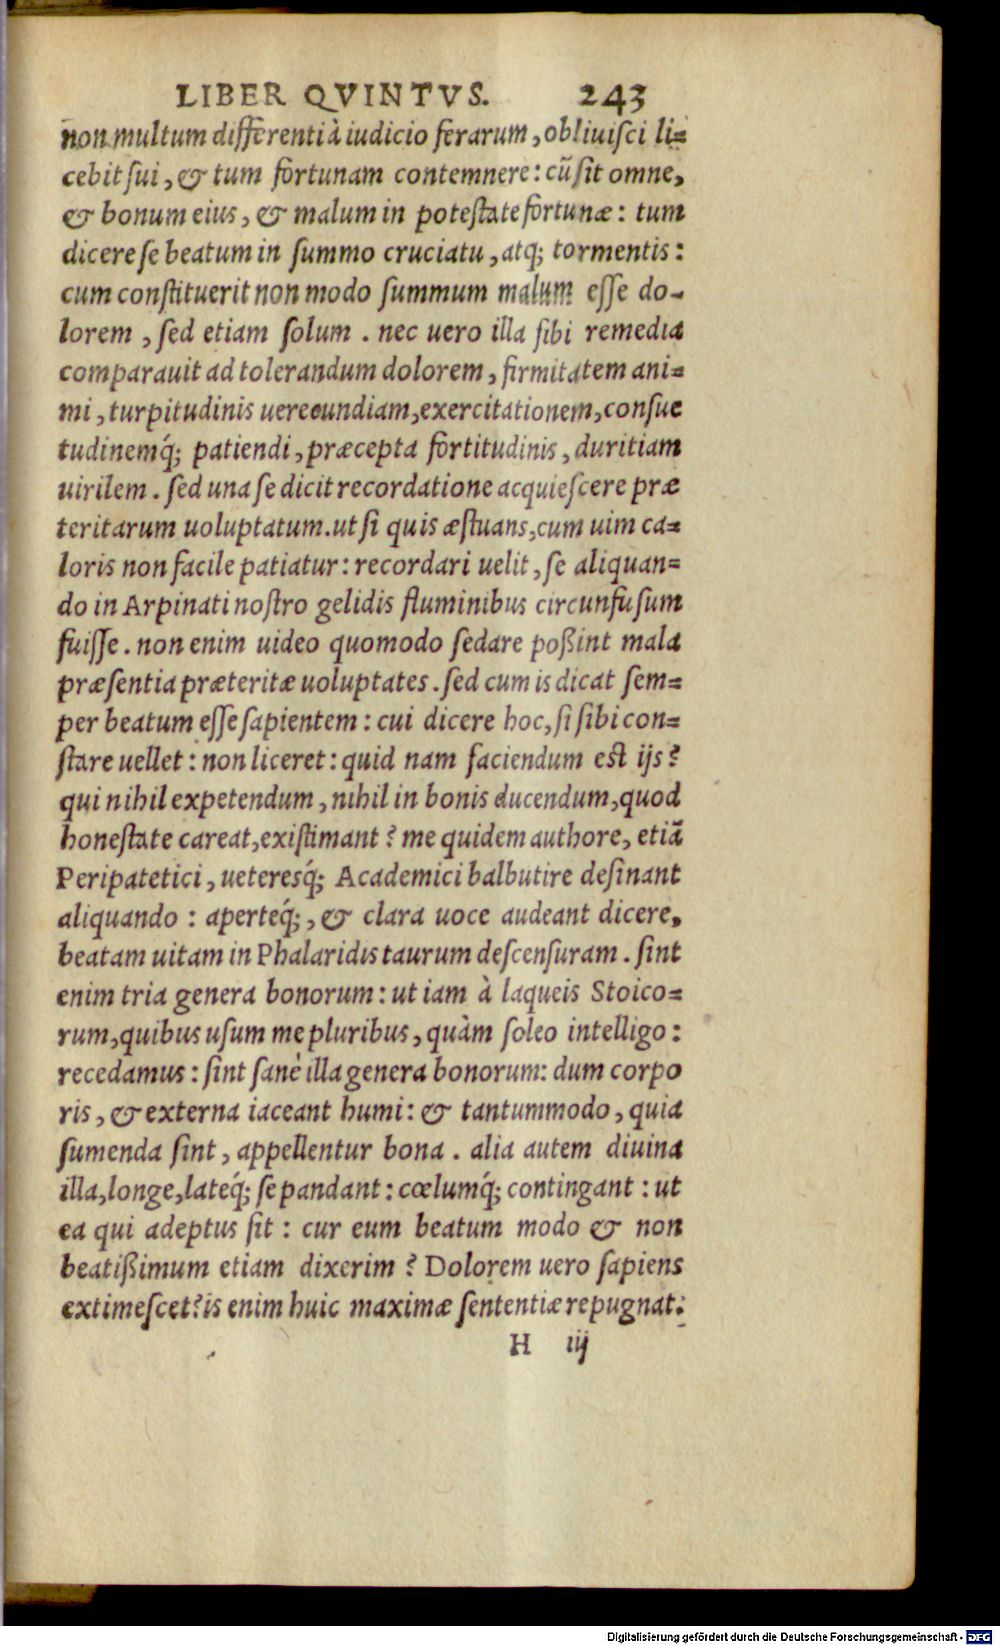 LIBER QVINTVS. 243
non multum differenti à iudicio ferarum, obliuiſci li=
cebit ſui, & tum fortunam contemnere: cū ſit omne,
& bonum eius, & malum in poteſtate fortunæ: tum
dicere ſe beatum in ſummo cruciatu, atq; tormentis:
cum conſtituerit non modo ſummum malum eſſe do-
lorem, ſed etiam ſolum. nec uero illa ſibi remedia
comparauit ad tolerandum dolorem, firmitatem ani=
mi, turpitudinis uerecundiam, exercitationem, conſue
tudinemq́; patiendi, præcepta fortitudinis, duritiam
uirilem. ſed una ſe dicit recordatione acquieſcere præ
teritarum uoluptatum. ut ſi quis æſtuans, cum uim ca=
loris non facile patiatur: recordari uelit, ſe aliquan=
do in Arpinati noſtro gelidis fluminibus circunfuſum
fuiſſe. non enim uideo quomodo ſedare poßint mala
præſentia præteritæ uoluptates. ſed cum is dicat ſem=
per beatum eſſe ſapientem: cui dicere hoc, ſi ſibi con=
ſtare uellet: non liceret: quid nam faciendum eſt ijs?
qui nihil expetendum, nihil in bonis ducendum, quod
honeſtate careat, exiſtimant? me quidem authore, etiā
Peripatetici, ueteresq́; Academici balbutire deſinant
aliquando: aperteq́;, & clara uoce audeant dicere,
beatam uitam in Phalaridis taurum deſcenſuram. ſint
enim tria genera bonorum: ut iam à laqueis Stoico=
rum, quibus uſum me pluribus, quàm ſoleo intelligo:
recedamus: ſint ſanè illa genera bonorum: dum corpo
ris, & externa iaceant humi: & tantummodo, quia
ſumenda ſint, appellentur bona. alia autem diuina
illa, longe, lateq́; ſe pandant: cœlumq́; contingant: ut
ea qui adeptus ſit: cur eum beatum modo & non
beatißimum etiam dixerim? Dolorem uero ſapiens
extimeſcet? is enim huic maximæ ſententiæ repugnat:
H iij
Digitalisierung gefördert durch die Deutsche Forschungsgemeinschaft - DFG